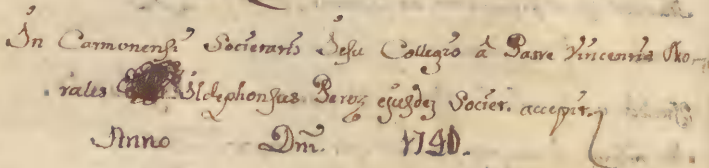 In Carmonensi Societatis Jesu Collegio à Patre Vincentio Mo-
rales Ildephonsus Perez ejusdez Societ. accepit.
Anno Dni. 1740.